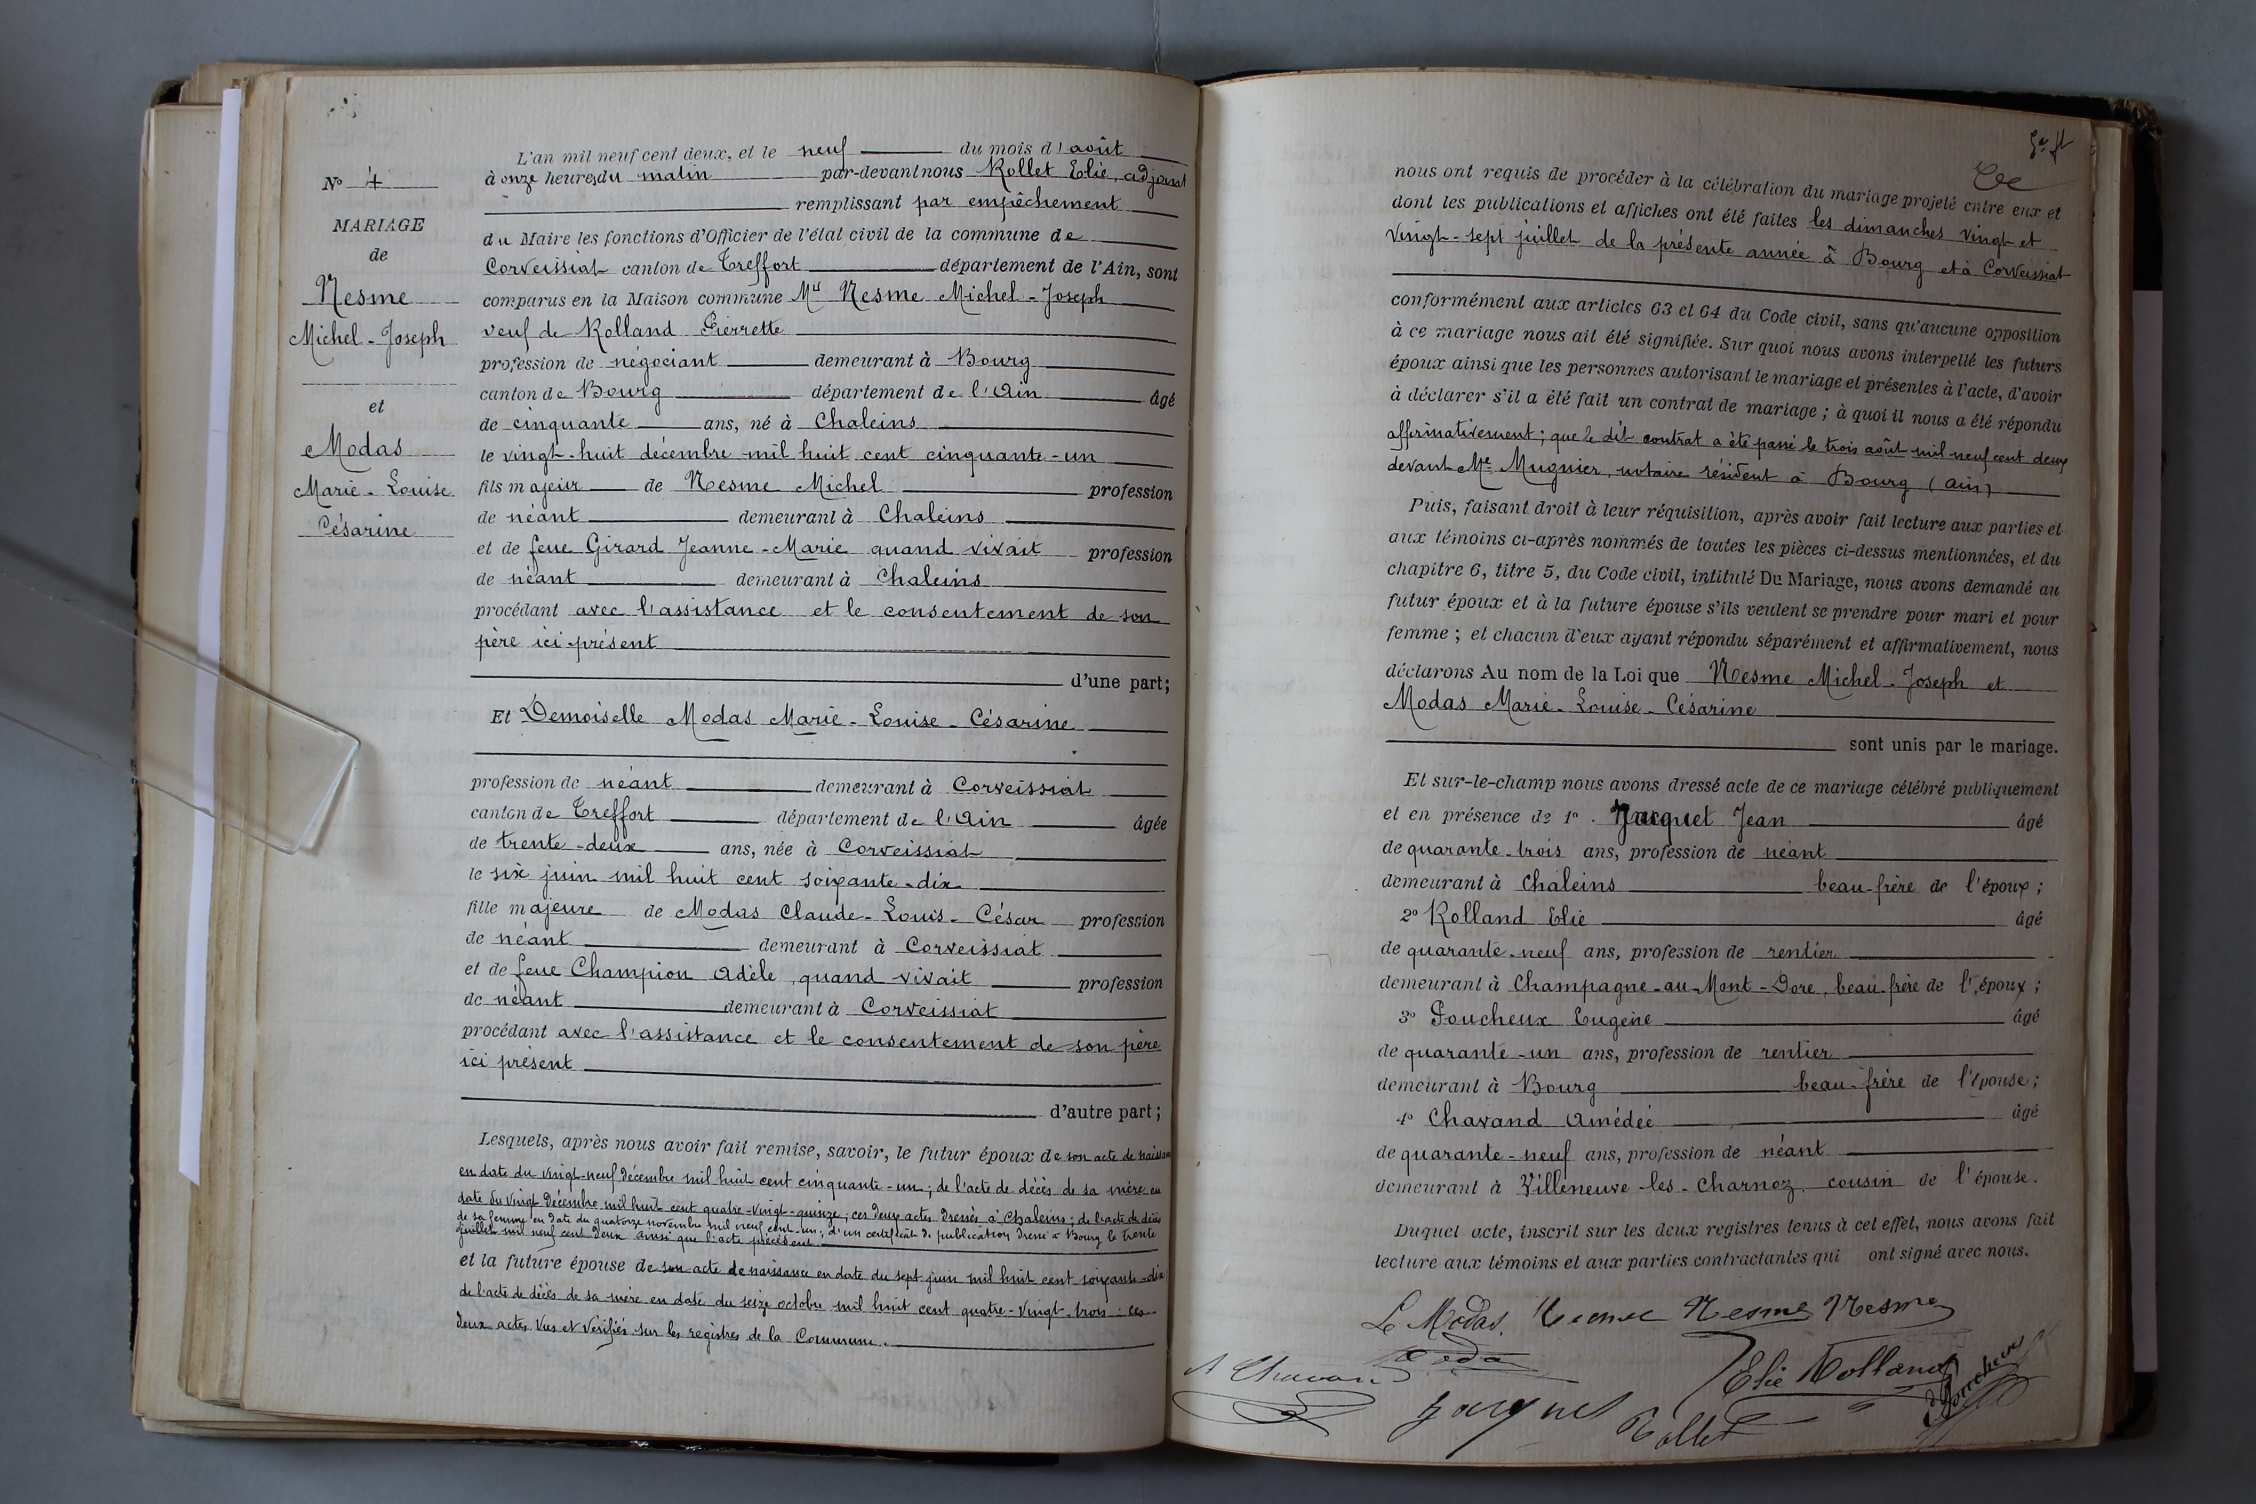 N° 4
MARIAGE
de
Nesme
Michel-Joseph
et
Modas
Marie-Louise
Césarine
L'an mil neuf cent deux, et le neuf du mois d'août
à onze heures du matin par-devant nous Rollet Elie, adjoint
remplissant par empêchement
du Maire les fonctions d'Officier de l'état civil de la commune de
Corveissiat canton de Treffort département de l'Ain, sont
comparus en la Maison commune Mr Nesme Michel-Joseph
veuf de Rolland Pierrette
profession de négociant demeurant à Bourg
canton de Bourg département de l'Ain âgé
de cinquante ans, né à Chaleins
le vingt-huit décembre mil huit cent cinquante-un
fils majeur de Nesme Michel profession
de néant demeurant à Chaleins
et de feue Girard Jeanne-Marie quand vivait profession
de néant demeurant à Chaleins
procédant avec l'assistance et le consentement de son
père ici présent
d'une part;
Et Demoiselle Modas Marie-Louise-Césarine
profession de néant demeurant à Corveissiat
canton de Treffort département de l'Ain âgée
de trente-deux ans, née à Corveissiat
le six juin mil huit cent soixante-dix
fille majeure de Modas Claude-Louis-César profession
de néant demeurant à Corveissiat
et de feue Champion Adèle, quand vivait profession
de néant demeurant à Corveissiat
procédant avec l'assistance et le consentement de son père
ici présent
d'autre part;
Lesquels, après nous avoir fait remise, savoir, le futur époux de son acte de naissance
en date du vingt-neuf décembre mil huit cent cinquante-un; de l'acte de décès de sa mère en
date du vingt décembre mil huit cent quatre-vingt-quinze; ces deux actes dressés à Chaleins; de l'acte de décès
de sa femme en date du quatorze novembre mil neuf cent un; d'un certificat de publication dressé à Bourg le trente
juillet mil neuf cent deux ainsi que l'acte précédent
et la future épouse de son acte de naissance en date du sept juin mil huit cent soixante-dix
de l'acte de décès de sa mère en date du seize octobre mil huit cent quatre-vingt-trois; ces
deux actes vus et vérifiés sur les registres de la Commune.
nous ont requis de procéder à la célébration du mariage projeté entre eux et
dont les publications et affiches ont été faites les dimanches vingt et
vingt-sept juillet de la présente année à Bourg et à Corveissiat
conformément aux articles 63 et 64 du Code civil, sans qu'aucune opposition
à ce mariage nous ait été signifiée. Sur quoi nous avons interpellé les futurs
époux ainsi que les personnes autorisant le mariage et présentes à l'acte, d'avoir
à déclarer s'il a été fait un contrat de mariage; à quoi il nous a été répondu
affirmativement; que le dit contrat a été passé le trois août mil neuf cent deux
devant Me Mugnier, notaire résident à Bourg (Ain)
Puis, faisant droit à leur réquisition, après avoir fait lecture aux parties et
aux témoins ci-après nommés de toutes les pièces ci-dessus mentionnées, et du
chapitre 6, titre 5, du Code civil, intitulé Du Mariage, nous avons demandé au
futur époux et à la future épouse s'ils veulent se prendre pour mari et pour
femme; et chacun d'eux ayant répondu séparément et affirmativement, nous
déclarons Au nom de la Loi que Nesme Michel-Joseph et
Modas Marie-Louise-Césarine
sont unis par le mariage.
Et sur-le-champ nous avons dressé acte de ce mariage célébré publiquement
et en présence de 1° Jacquet Jean âgé
de quarante-trois ans, profession de néant
demeurant à Chaleins beau-frère de l'époux;
2° Rolland Elie âgé
de quarante-neuf ans, profession de rentier
demeurant à Champagne-au-Mont-Dore, beau-frère de l'époux;
3° Poucheux Eugène âgé
de quarante-un ans, profession de rentier
demeurant à Bourg beau-frère de l'épouse;
4° Chavand Amédée âgé
de quarante-neuf ans, profession de néant
demeurant à Villeneuve-les-Charnoz cousin de l'épouse.
Duquel acte, inscrit sur les deux registres tenus à cet effet, nous avons fait
lecture aux témoins et aux parties contractantes qui ont signé avec nous.
L. Modas. Nesme Nesme
A Chavand Elie Rolland
Jacquet Rollet